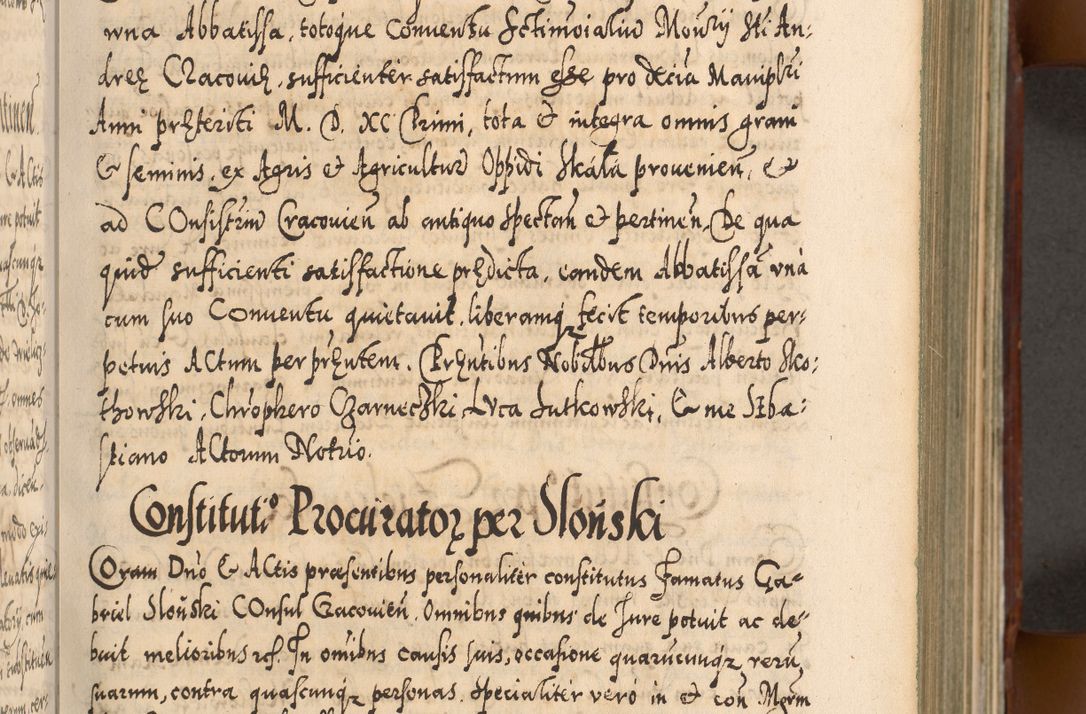 vna Abbatissa, totoque Conventu Sctimoialiu Moury Sti An:
dreę Cracovię, sufficienter satisfactum esse pro decia Manipli
Anni pręteriti M. D. XC Primi, tota & integra omnis grani
& seminis, ex Agris & Agricultur Oppidi Skála provenien, &
ad Consistriu Cracovien ab antiquo spectan & pertinen, De qua
quid sufficienti satisfactione prędicta, eandem Abbatissã vnà
cum suo Conventu quietavit, liberamqꝫ fecit temporibus per-
petuis Actum per pręntem. Pręntibus Nobilibus Dnis Alberto Sko:
thowski, Chrophero Czarneczki, Lvca Lutkowski, & me Seba:
stiano Actorum Notrio.
Constitutio Procuratoꝝ per Sloński
Coram Dno & Actis præsentibus personalitèr constitutus Famatus Ga-
briel Sloński Consul Cracovien, Omnibus quibus de Iure potuit ac de-
buit melioribus rcs. In omibus causis suis, occasione quarucunqꝫ reru
suarum, contra quascunqꝫ personas, specialitèr verò in & con Mgrm